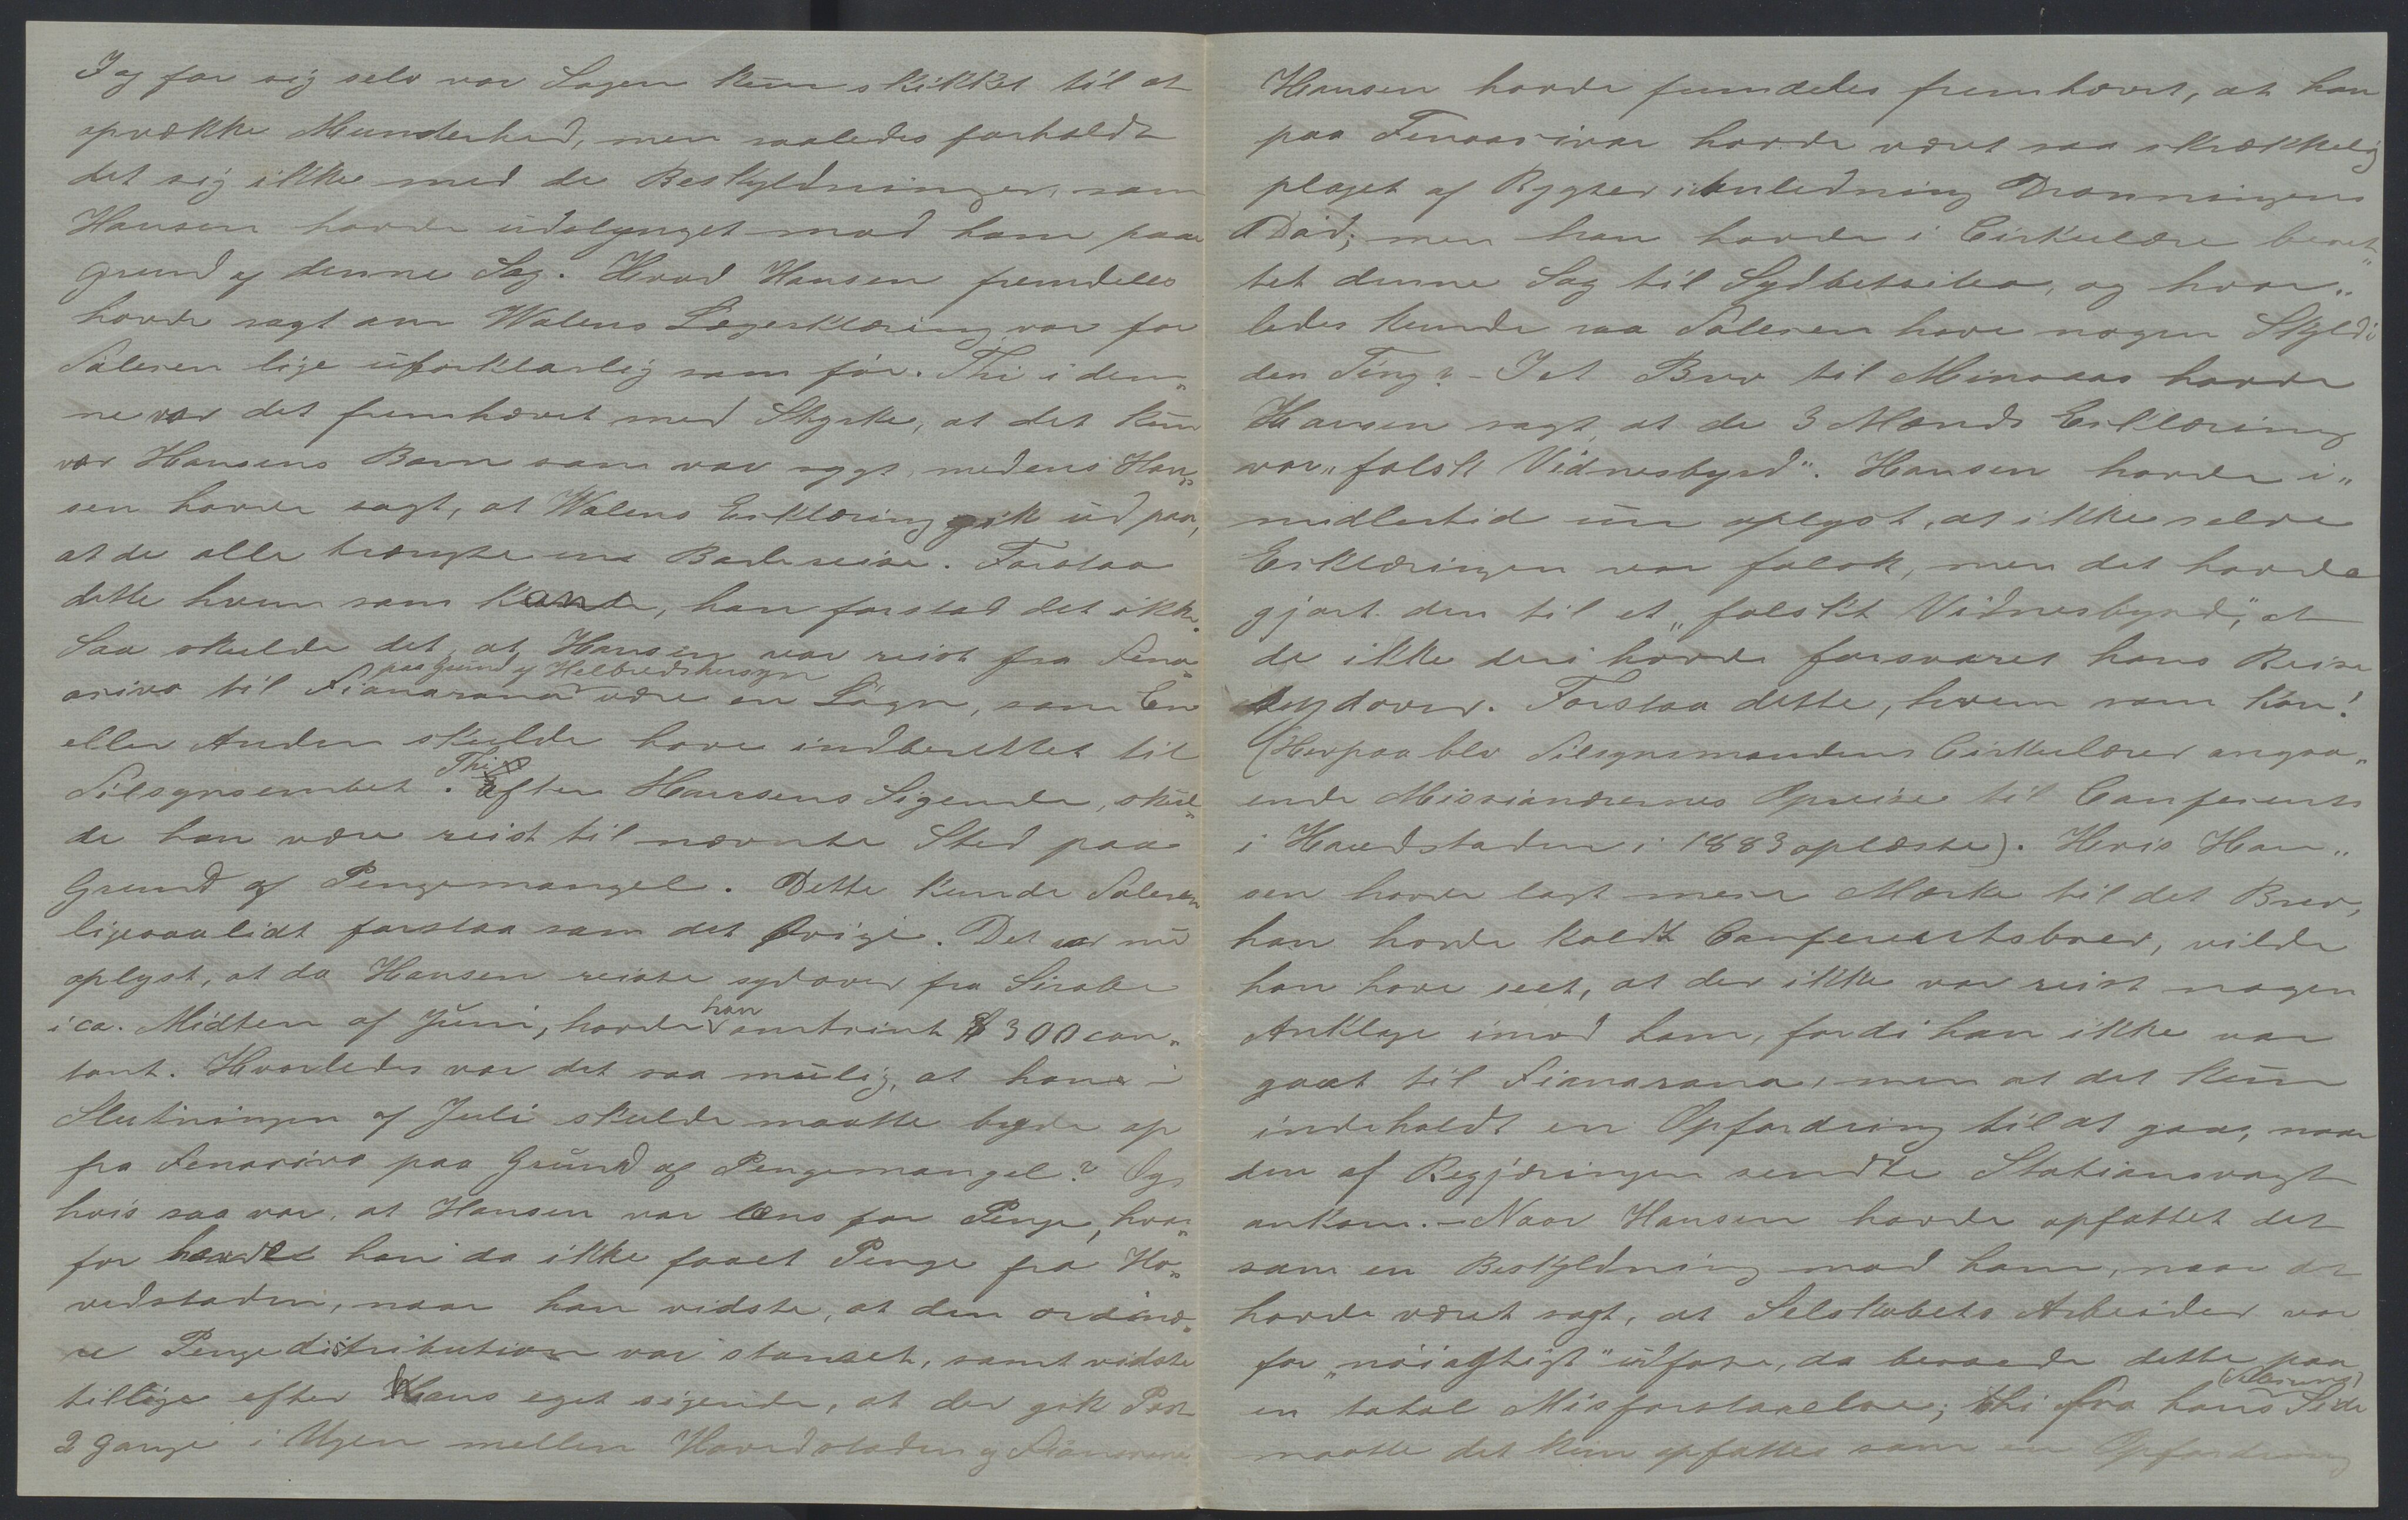 I og for sig selv var Sagen kun skikket til at
opvække Munterhed, men saaledes forholdt
det sig ikke med de Beskyldninger, som
Hansen havde udslynget mod ham paa
Grund af denne Sag. Hvad Hansen fremdeles
havde sagt om Walens Lægeerklæring var for
Taleren lige uforklarlig som før. Thi i den„
ne var det fremhævet med Styrke, at det kun
var Hansens Barn som var sygt, medens Han„
sen havde sagt, at Walens Erklæring gik ud paa,
at de alle trængte en Badereise. Forstaa
dette hvem som kande, han forstod det ikke.
Saa skulde det, at Hansen var reist fra Feno„
arivo til Fianarana paa Grund af Helbredshensyn være en Løgn, som En
eller Anden skulde have indberettet til
Tilsynsembet. Thi efter Hansens Sigende, skul„
de han være reist til nævnte Sted paa
Grund af Pengemangel. Dette kunde Taleren
ligesaalidt forstaa som det Øvrige. Det var nu
oplyst, at da Hansen reiste sydover fra Sirabe
i ca. Midten af Juni, havde han omtrint $ 300 con„
tant. Hvorledes var det saa mulig, at han i
Slutningen af Juli skulde maatte bryde op
fra Fenoarivo paa Grund af Pengemangel? Og
hvis saa var, at Hansen var læns for Penge, hvor„
for havde han da ikke faaet Penge fra Ho„
vedstaden, naar han vidste, at den ordinæ„
re Pengedistribution var stanset, samt vidste
tillige efter Hans eget sigende, at der gik Post
2 Gange i Ugen mellem Hovedstaden og Fianarana
Hansen havde fremdeles fremhævet, at han
paa Fenoarivo havde været saa skrækkelig
plaget af Rygter i Anledning Dronningens
Død; men han havde i Cirkulære beret„
tet denne Sag til Sydbetsileo, og hvor„
ledes kunde saa Taleren have nogen Skyld i
den Ting? – I et Brev til Minsaas havde
Hansen sagt, at de 3 Mænds Erklæring
var „falsk Vidnesbyrd". Hansen havde i„
midlertid nu oplyst, at ikke selve
Erklæringen var falsk, men det havde
gjort den til et „falskt Vidnesbyrd", at
de ikke deri havde forsvaret hans Reise
sydover. Forstaa dette, hvem som kan!
(Herpaa blev Tilsynsmandens Cirkulærer angaa„
ende Missionærernes Opreise til Conferents
i Hovedstaden i 1883 oplæste). Hvis Han„
sen havde lagt mere Mærke til det Brev,
han havde kaldt Conferentsbrev, vilde
han have seet, at der ikke var reist nogen
Anklage imod ham, fordi han ikke var
gaaet til Fianarana, men at det kun
indeholdt en Opfordring til at gaa, naar
den af Regjæringen sendte Stationsvagt
ankom. – Naar Hansen havde opfattet det
som en Beskyldning mod ham, naar det
havde været sagt, at Selskabets Arbeider var
for „nøiagtigt" udføre, da beroede dette paa
en total Misforstaaelse; thi fra hans (Talerens) Side
maatte det kun opfattes som en Opfordring